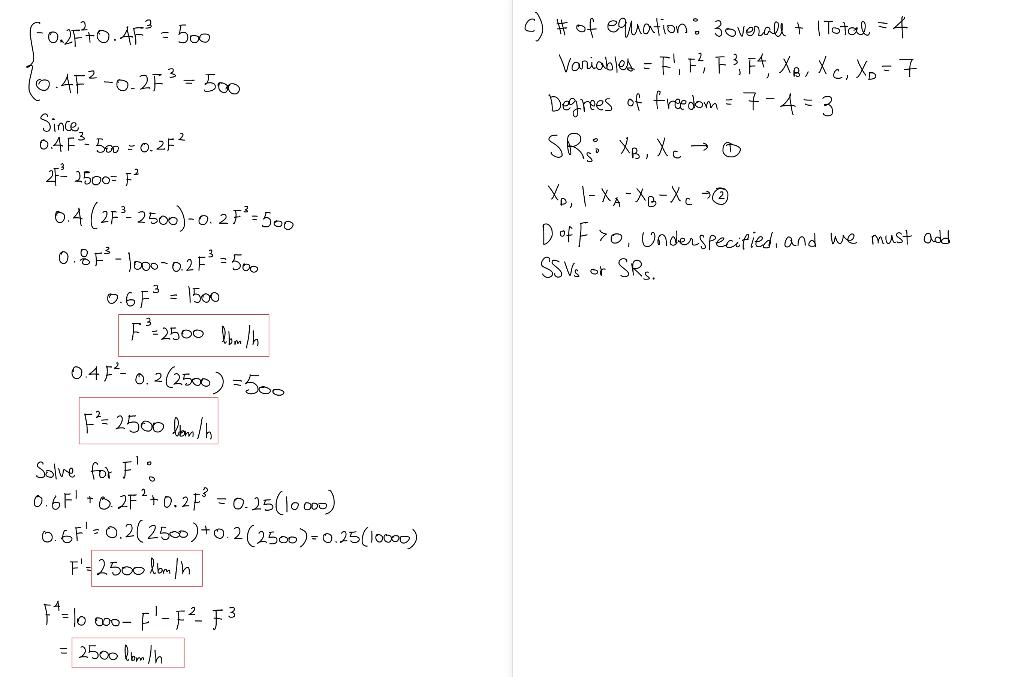 -0.2F²+0.4F³ = 500
0.4F² -0.2F³ = 500
Since,
0.4F³- 500 = 0.2F²
2F³- 2500= F²
0.4 (2F³- 2500)-0.2F³=500
0.8F³-1000-0.2F³=500
0.6F³ = 1500
F³=2500 lbm/h
0.4F²- 0.2(2500)=500
F²= 2500 lbm/h
Solve for F¹:
0.6F¹ +0.2F²+0.2F³ = 0.25(10 000)
0.6F¹=0.2(2500)+0.2(2500)=0.25(10000)
F¹=2500 lbm/h
F⁴=10 000- F¹-F²-F³
= 2500 lbm/h
C) # of equation: 3 overall + 1 Total = 4
Variables = F¹, F², F³, F⁴, XB, XC, XD = 7
Degrees of freedom = 7-4=3
SRs: XB, XC → ①
XD, 1-XA-XB-XC →②
D of F >0, Underspecified, and we must add
SSVs or SRs.